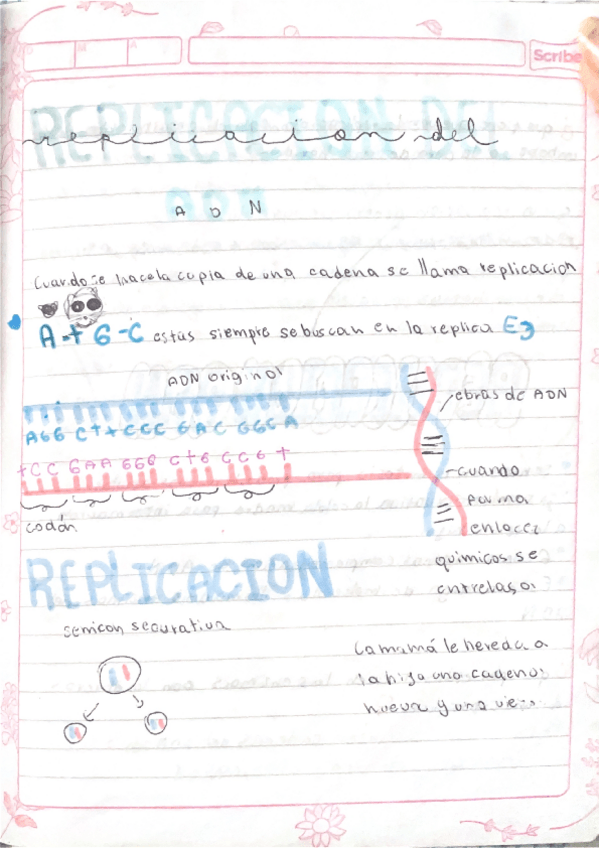 Scribe
replicacion del
REPLICACION DEL
A D N
Cuando se hace la copia de una cadena se llama replicacion
A-t G-C estas siempre se buscan en la replica Ej
ADN original
AGG CttCCC GAC GGCA
tCC GAA GGG CtG CCG t
codón
ebras de ADN
-cuando
forma
enlacez
quimicos se
entrelasa
REPLICACION
semiconservativa
la mamá le hereda a
la hija una cadena
nueva y una vie